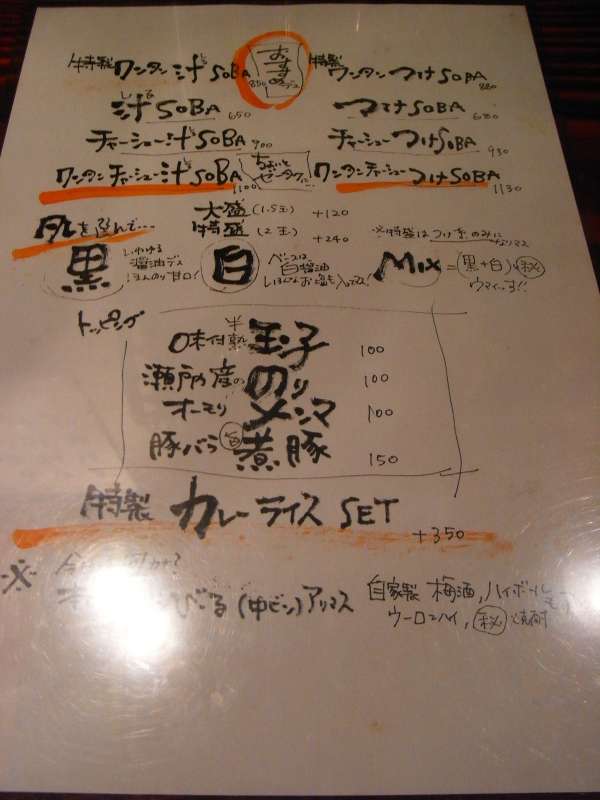 特製ワンタン汁SOBA 850
おすすめデス
特製ワンタンつけSOBA 880
汁SOBA 650
つけSOBA 680
チャーシュー汁SOBA 900
チャーシューつけSOBA 930
ワンタンチャーシュー汁SOBA 1100
ちょいとゼータク
ワンタンチャーシューつけSOBA 1130
を選んで…
大盛(1.5玉) +120
特盛(2玉) +240
※特盛はつけ系のみになリマス
黒 いわゆる醤油デス ほんのり甘口!
白 ベースは白醤油
Mix =(黒+白)㊙ ウマイっす!!
トッピング
味付半熟玉子 100
瀬戸内産ののり 100
オーモリメンマ 100
豚バラ煮豚 150
特製カレーライスSET +350
※
びーる(中ビン)アリマス
自家製梅酒,ハイボール
ウーロンハイ,㊙焼酎